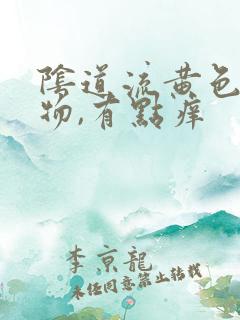 陰道流黄色
物,有點痒
李京龍
未任同意禁止转载